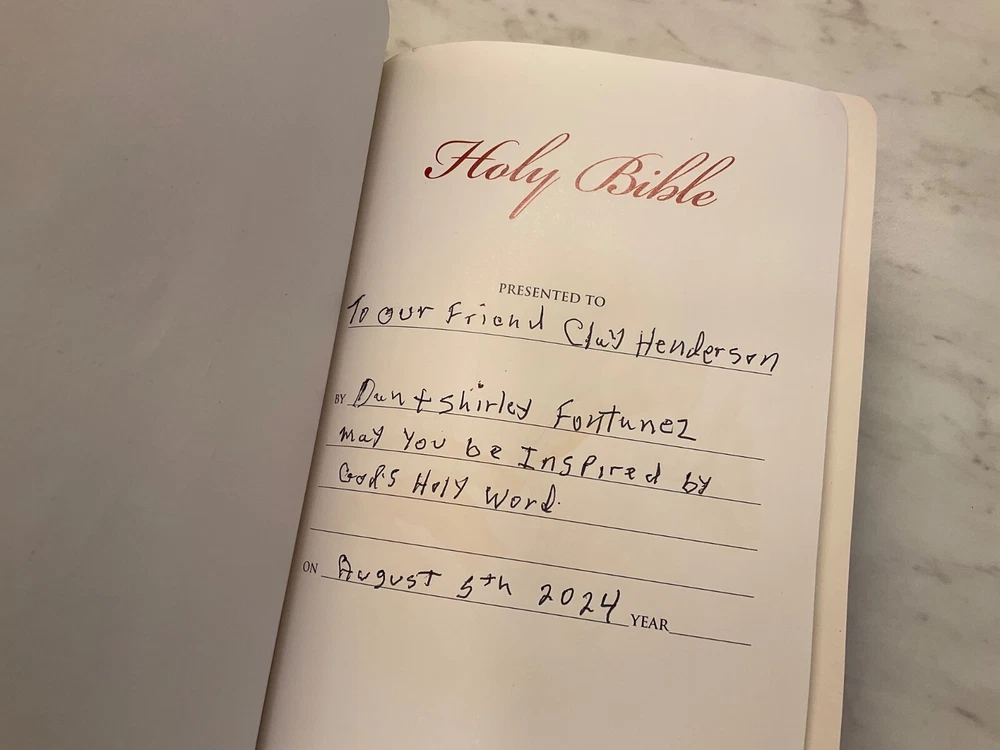 Holy Bible
PRESENTED TO
To our Friend Clay Henderson
BY Dan & Shirley Fortunez
may You be Inspired by
God's Holy Word.
ON August 5th 2024 YEAR